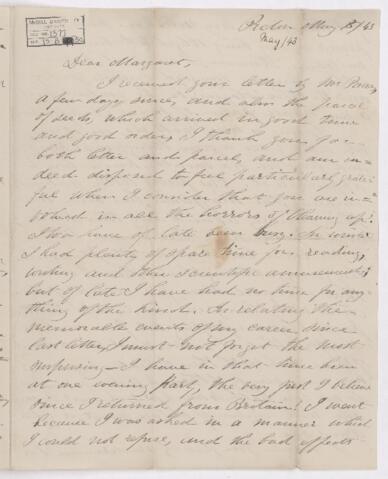 Pictou May 15/43
May/43
Dear Margaret,
I received your letter by Mr
a few days since, and also the parcel
of seeds, which arrived in good time
and good order. I thank you for
both letter and parcel, and am in-
deed disposed to feel particularly grate
ful when I consider that you are in-
volved in all the horrors of cleaning up.
I too have of late been busy. In winter
I had plenty of spare time for reading,
writing and other scientific amusements;
but of late I have had no time for any
thing of the kind. In relating the
memorable events of my career since
last letter, I must not forget the most
imposing — I have in that time been
at one evening party, the very first I believe
since I returned from Britain! I went
because I was asked in a manner which
I could not refuse, and the bad effects